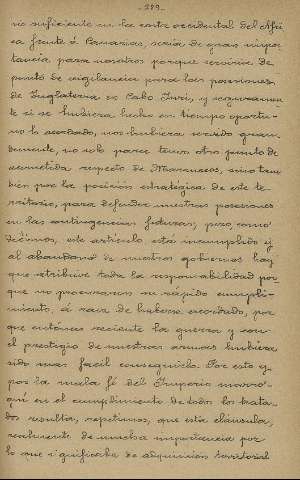 - 219 -
no suficiente en la costa occidental del Afri
ca frente á Canarias, sería de gran impor
tancia para nosotros porque serviría de
punto de vigilancia para las posesiones
de Inglaterra en Cabo Juvi, y seguramen
te si se hubiera hecho en tiempo oportu-
no lo acordado, nos hubiera servido gran
demente, no solo para tener otro punto de
acometida respecto de Marruecos, sino tam
bien por la posición estratégica de este te-
rritorio, para defender nuestras posesiones
en las contingencias futuras; pero, como
decimos, este artículo está incumplido y
al abandono de nuestros gobiernos hay
que atribuir toda la responsabilidad por
que no procuraron su rápido cumpli-
miento, á raiz de haberse acordado, por
que entónces reciente la guerra y con
el prestigio de nuestras armas hubiera
sido mas facil conseguirlo. Por esto y
por la mala fé del Imperio marro-
quí en el cumplimiento de todos los trata-
dos resulta, repetimos, que esta cláusula,
realmente de mucha importancia por
lo que significaba de adquisición territorial